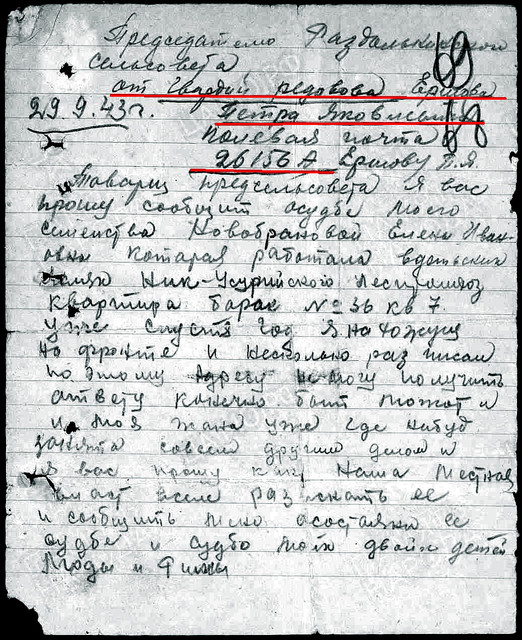 Председателю Раздольнинской
сельсовета
от Гвардии редовова Ершова
29.9.43г. Петра Яковлевича
Полевая почта
26156А Ершову П.Я.
Товарищ предсельсовета я вас
прошу сообщит осудбе моего
семейства Новобрановой Елены Иван-
овны которая работала вдетьских
яслях Ник-Усурийского Леспромхоз
Квартира барак №36 кв 7
уже спустя год я нахожус
на фронте и несколько раз писал
по этому адресу не могу получить
ответу конечно быт может и
и моя жана уже где нибуд
занята совсем другим делом и
я вас прошу как Наша Местная
власт разискать ее
и сообщить мене осостаянии ее
судбе и судбе моих двоих детей
Люды и Фимы
69